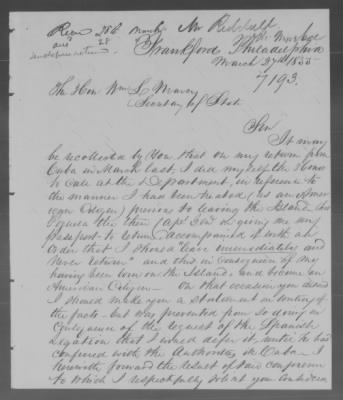 Recd 28th March Mr
ans 28
Frankford Philadelphia
March 27th 1855
7193.
The Hon Wm L Marcy
Secretary of State
Sir
It may
be recollected by You that on my return from
Cuba in March last, I did myself the Honor
to call at the Department, in reference to
the manner I had been treated (as an Amer
ican Citizen) previous to leaving the Island
the then Capt Genl giving me my
Passport to return, accompanied it with an
order that I should "leave immediately and
never return" and this in consequence of my
having been born on the Island, and become an
American Citizen — On that occasion you desired
I should make you a statement in writing of
the facts — but was prevented from so doing in
consequence of the request of the Spanish
Legation that I would defer it, until he had
conferred with the Authorities in Cuba — I
herewith forward the result of said conference
to which I respectfully solicit your